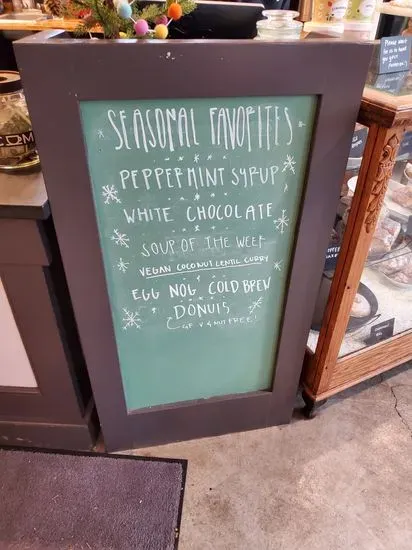 SEASONAL FAVORITES
PEPPERMINT SYRUP
WHITE CHOCOLATE
SOUP OF THE WEEK
VEGAN COCONUT LENTIL CURRY
EGG NOG COLD BREW
DONUTS
GF V & NUT FREE!